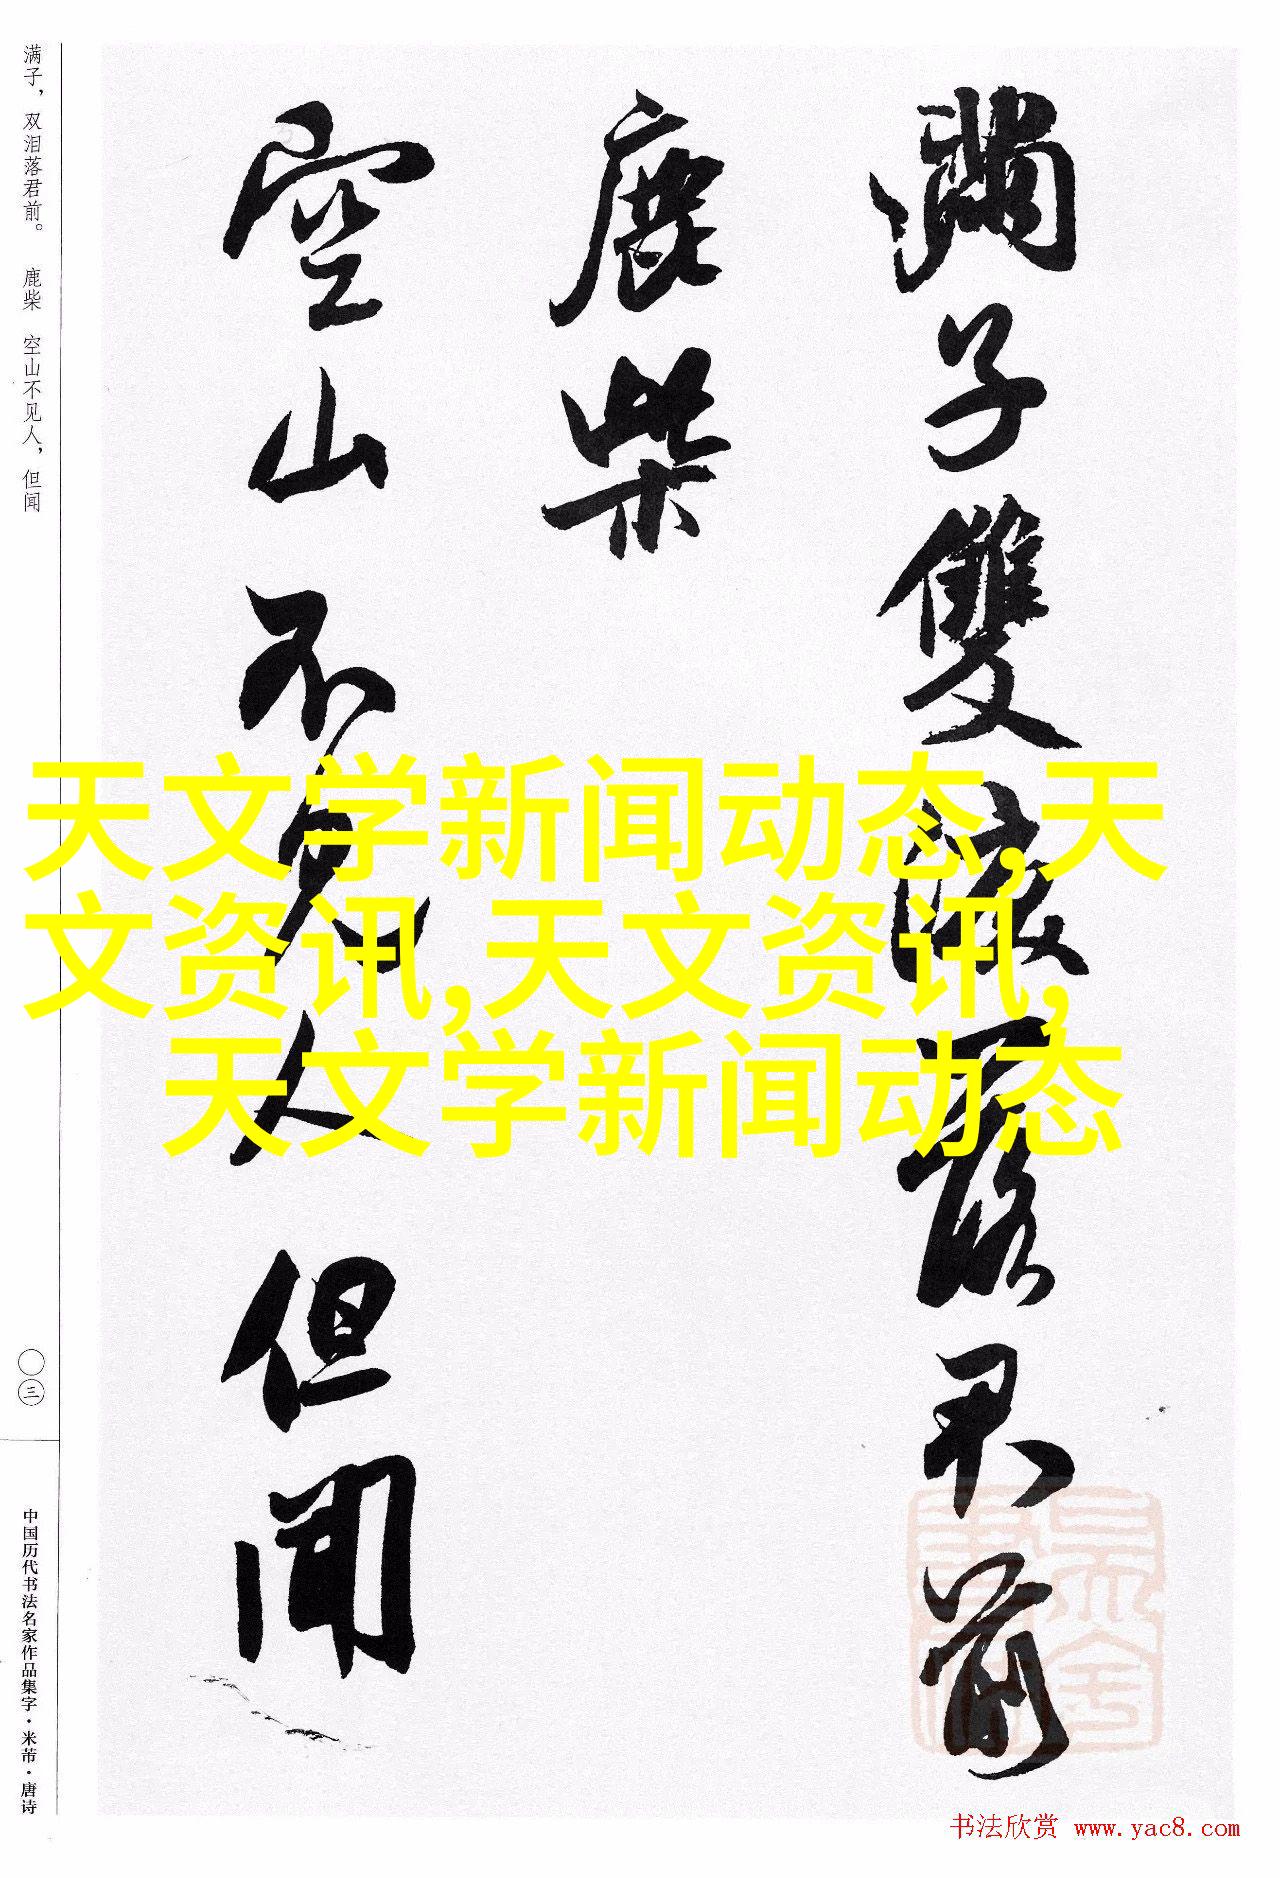 满子，双泪落君前。 鹿柴 空山不见人，但闻
〇三
中国历代书法名家作品集字·米芾·唐诗
滿子雙淚落君前
鹿柴
空山不見人但聞
天文学新闻动态,天
文资讯,天文资讯,
天文学新闻动态
书法欣赏 www.yac8.com